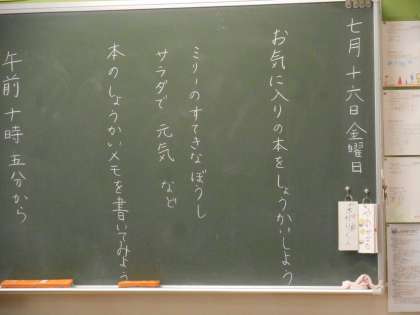 七月十六日金曜日
お気に入りの本をしょうかいしよう
ミリーのすてきなぼうし
サラダで元気 など
本のしょうかいメモを書いてみよう
午前十時五分から